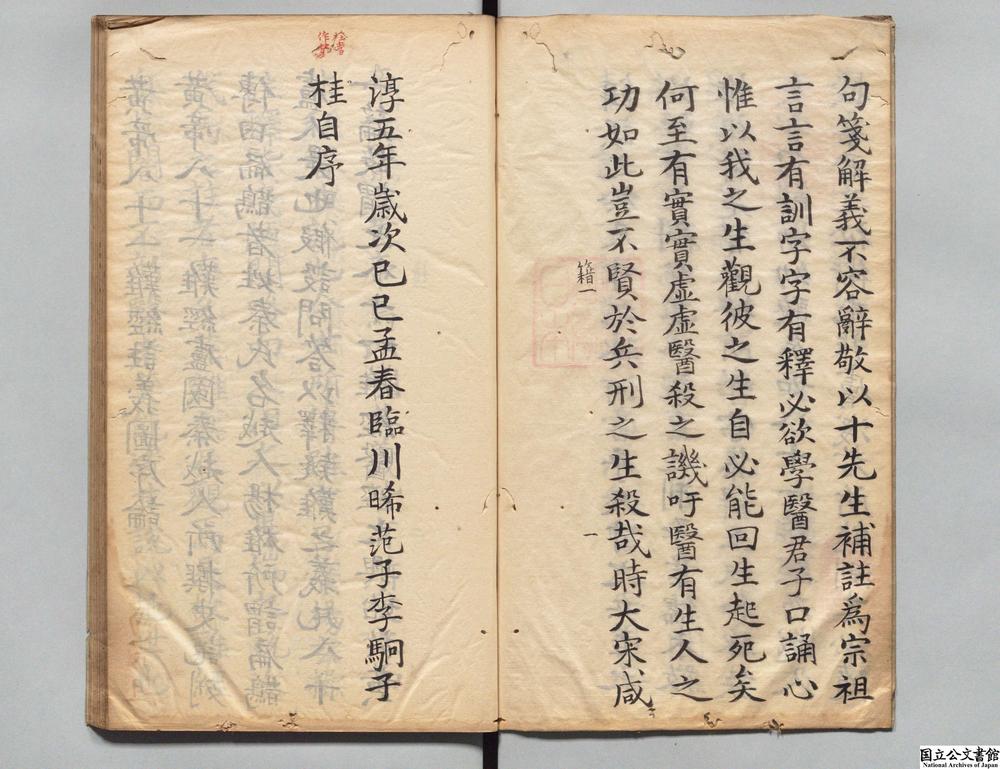 句箋解義不容辭敬以十先生補註爲宗祖
言言有訓字字有釋必欲學醫君子口誦心
惟以我之生觀彼之生自必能回生起死矣
何至有實實虛虛醫殺之譏吁醫有生人之
功如此豈不賢於兵刑之生殺哉時大宋咸
籍一
一
淳五年歲次已巳孟春臨川晞范子李駉子
桂自序
国立公文書館
National Archives of Japan